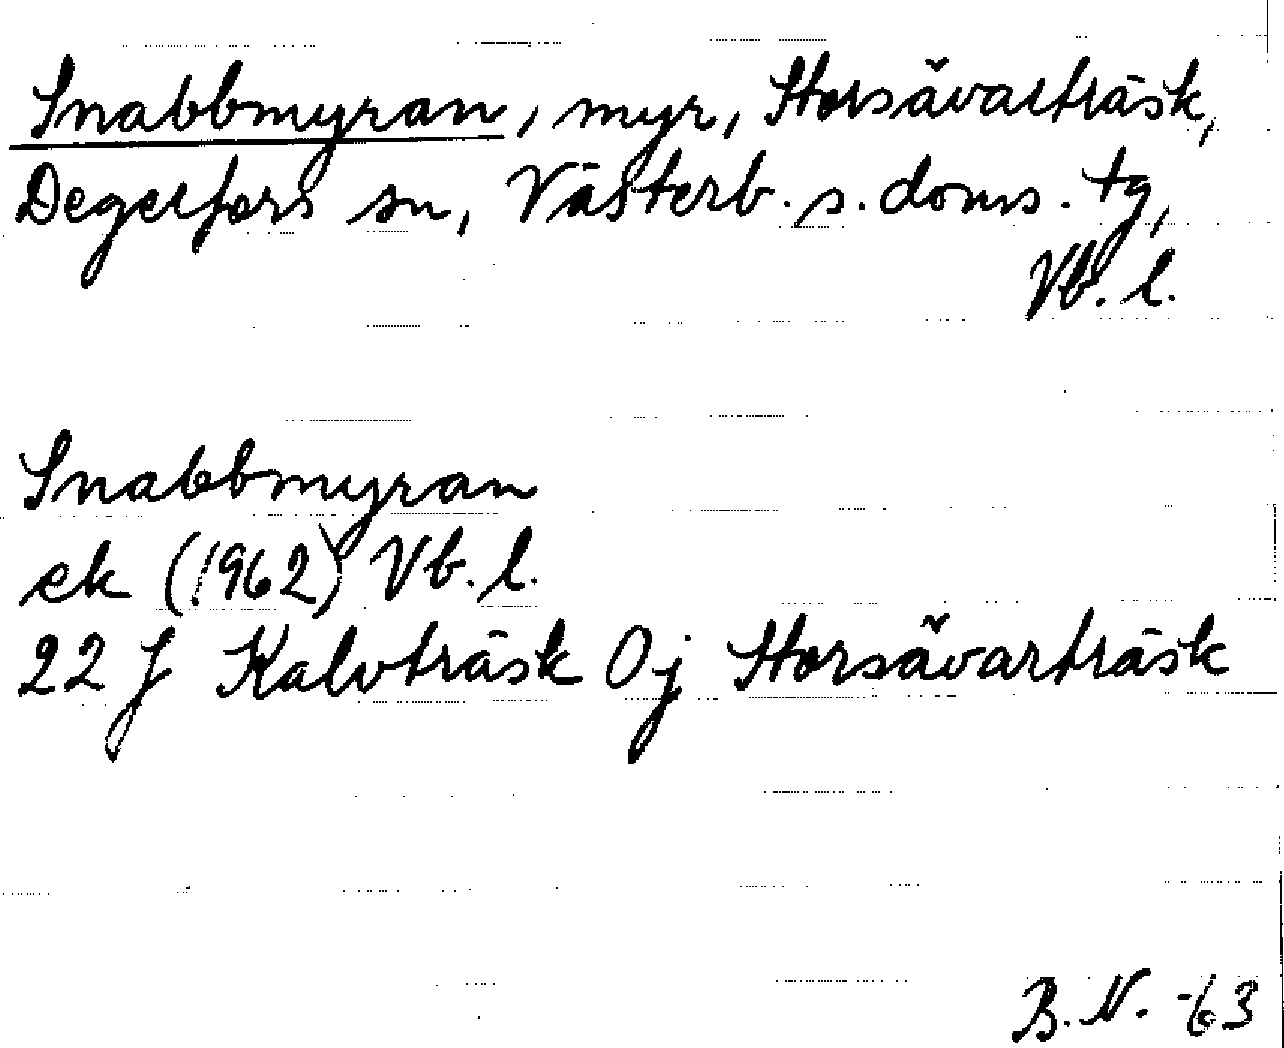 Snabbmyran, myr, Storsävarträsk,
Degerfors sn, Västerb. s. doms. tg,
Vb. l.
Snabbmyran
ek (1962) Vb. l.
22 J Kalvträsk 0j Storsävarträsk
B. N. -63